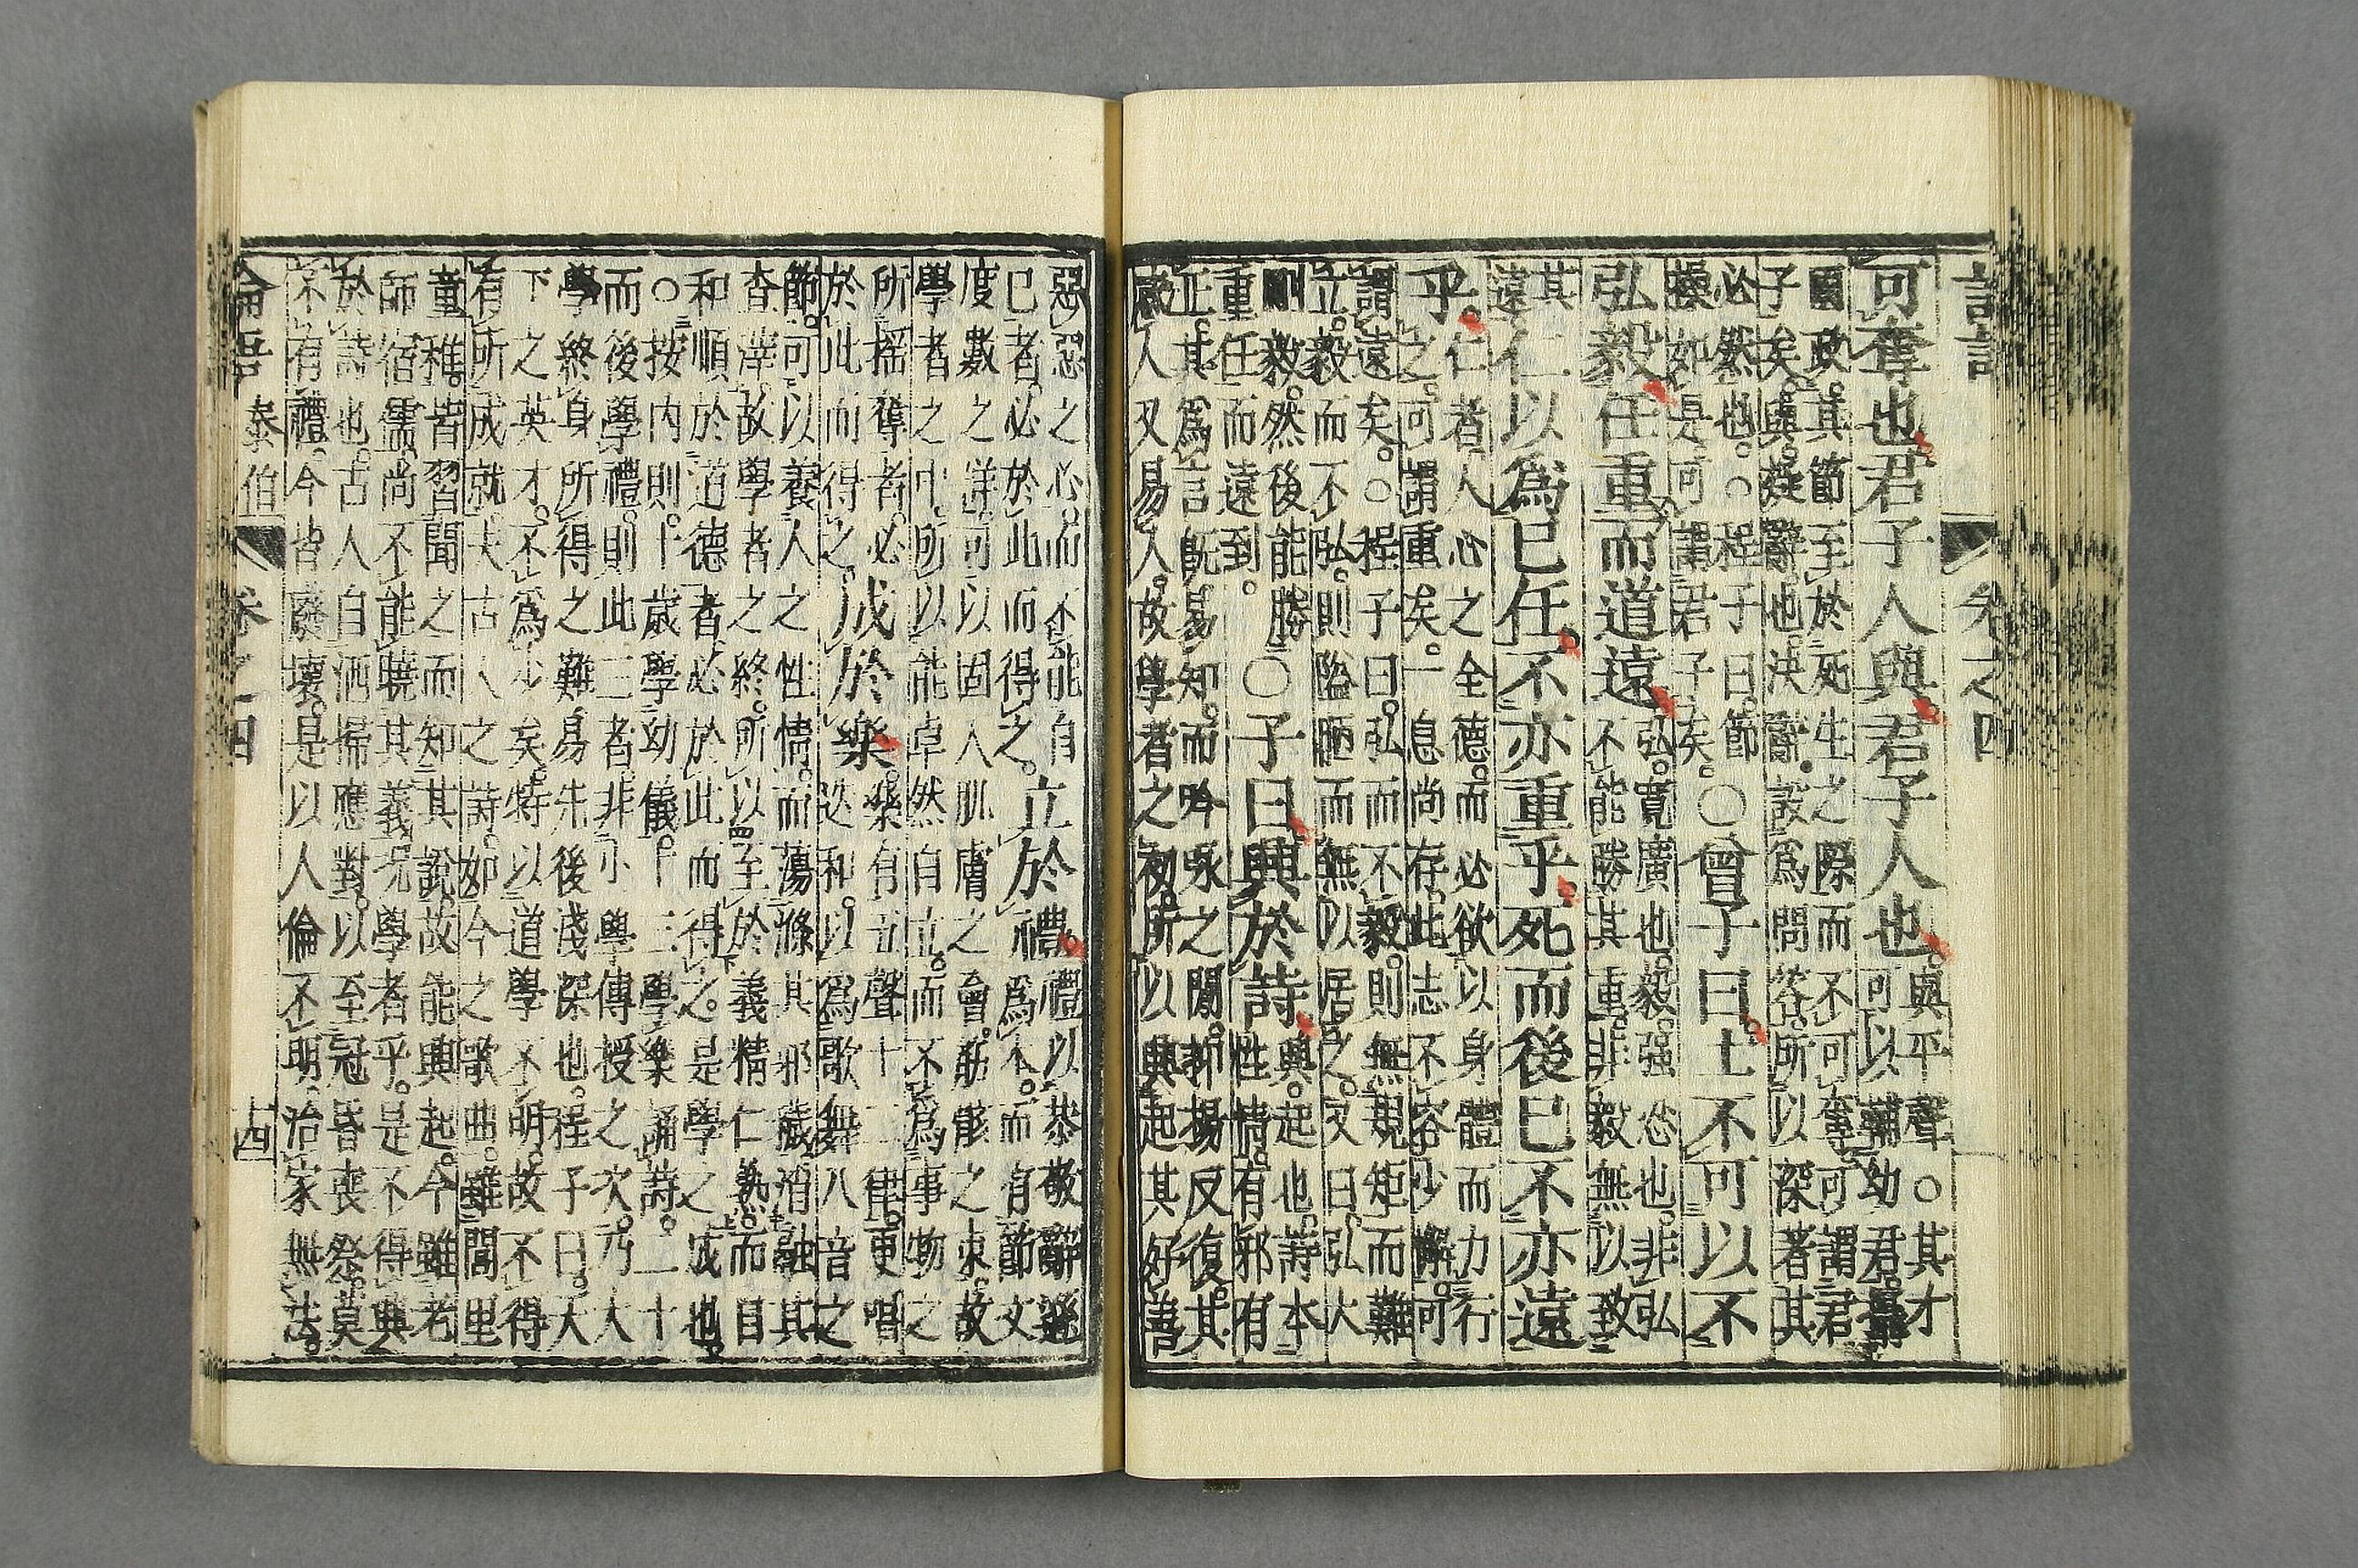 卷之四
可奪也。君子人與。君子人也。
與平聲。○其才
可以輔幼君。攝
國政。其節至於死生之際而不可奪。可謂君
子矣。與。疑辭也。決辭。設爲問答。所以深著其
必然也。○程子曰。節
操如是。可謂君子矣。
○曾子曰。士不可以不
弘毅。任重而道遠。
弘。寬廣也。毅。强忍也。非弘
不能勝其重。非毅無以致
其
遠
仁以爲己任。不亦重乎。死而後已。不亦遠
乎。
仁者人心之全德。而必欲以身體而力行
之。可謂重矣。一息尚存。此志不容少懈。可
謂遠矣。○程子曰。弘而不毅。則無規矩而難
立。毅而不弘。則隘陋而無以居之。又曰。弘大
剛毅。然後能勝
重任而遠到。
○子曰。興於詩。
興。起也。詩本
性情。有邪有
正。其爲言既易知。而吟咏之間。抑揚反復。其
感人又易入。故學者之初。所以興起其好善
惡惡之心。而不能自
已者。必於此而得之。
立於禮。
禮以恭敬辭遜
爲本。而有節文
度數之詳。可以固人肌膚之會。筋骸之束。故
學者之中。所以能卓然自立。而不爲事物之
所搖奪者。必
於此而得之。
成於樂。
樂有五聲十二律。更唱
迭和。以爲歌舞八音之
節。可以養人之性情。而蕩滌其邪穢。消融其
查滓。故學者之終。所以至於義精仁熟。而自
和順於道德者。必於此而得之。是學之成也。
○按內則。十歲學幼儀。十三學樂誦詩。二十
而後學禮。則此三者。非小學傳授之次。乃大
學終身所得之難易先後淺深也。程子曰。天
下之英才。不爲少矣。特以道學不明。故不得
有所成就。夫古人之詩。如今之歌曲。雖閭里
童稚。皆習聞之而知其說。故能興起。今雖老
師宿儒。尚不能曉其義。況學者乎。是不得興
於詩也。古人自洒掃應對。以至冠昏喪祭。莫
不有禮。今皆廢壞。是以人倫不明。治家無法。
論語 泰伯 卷之四 十四